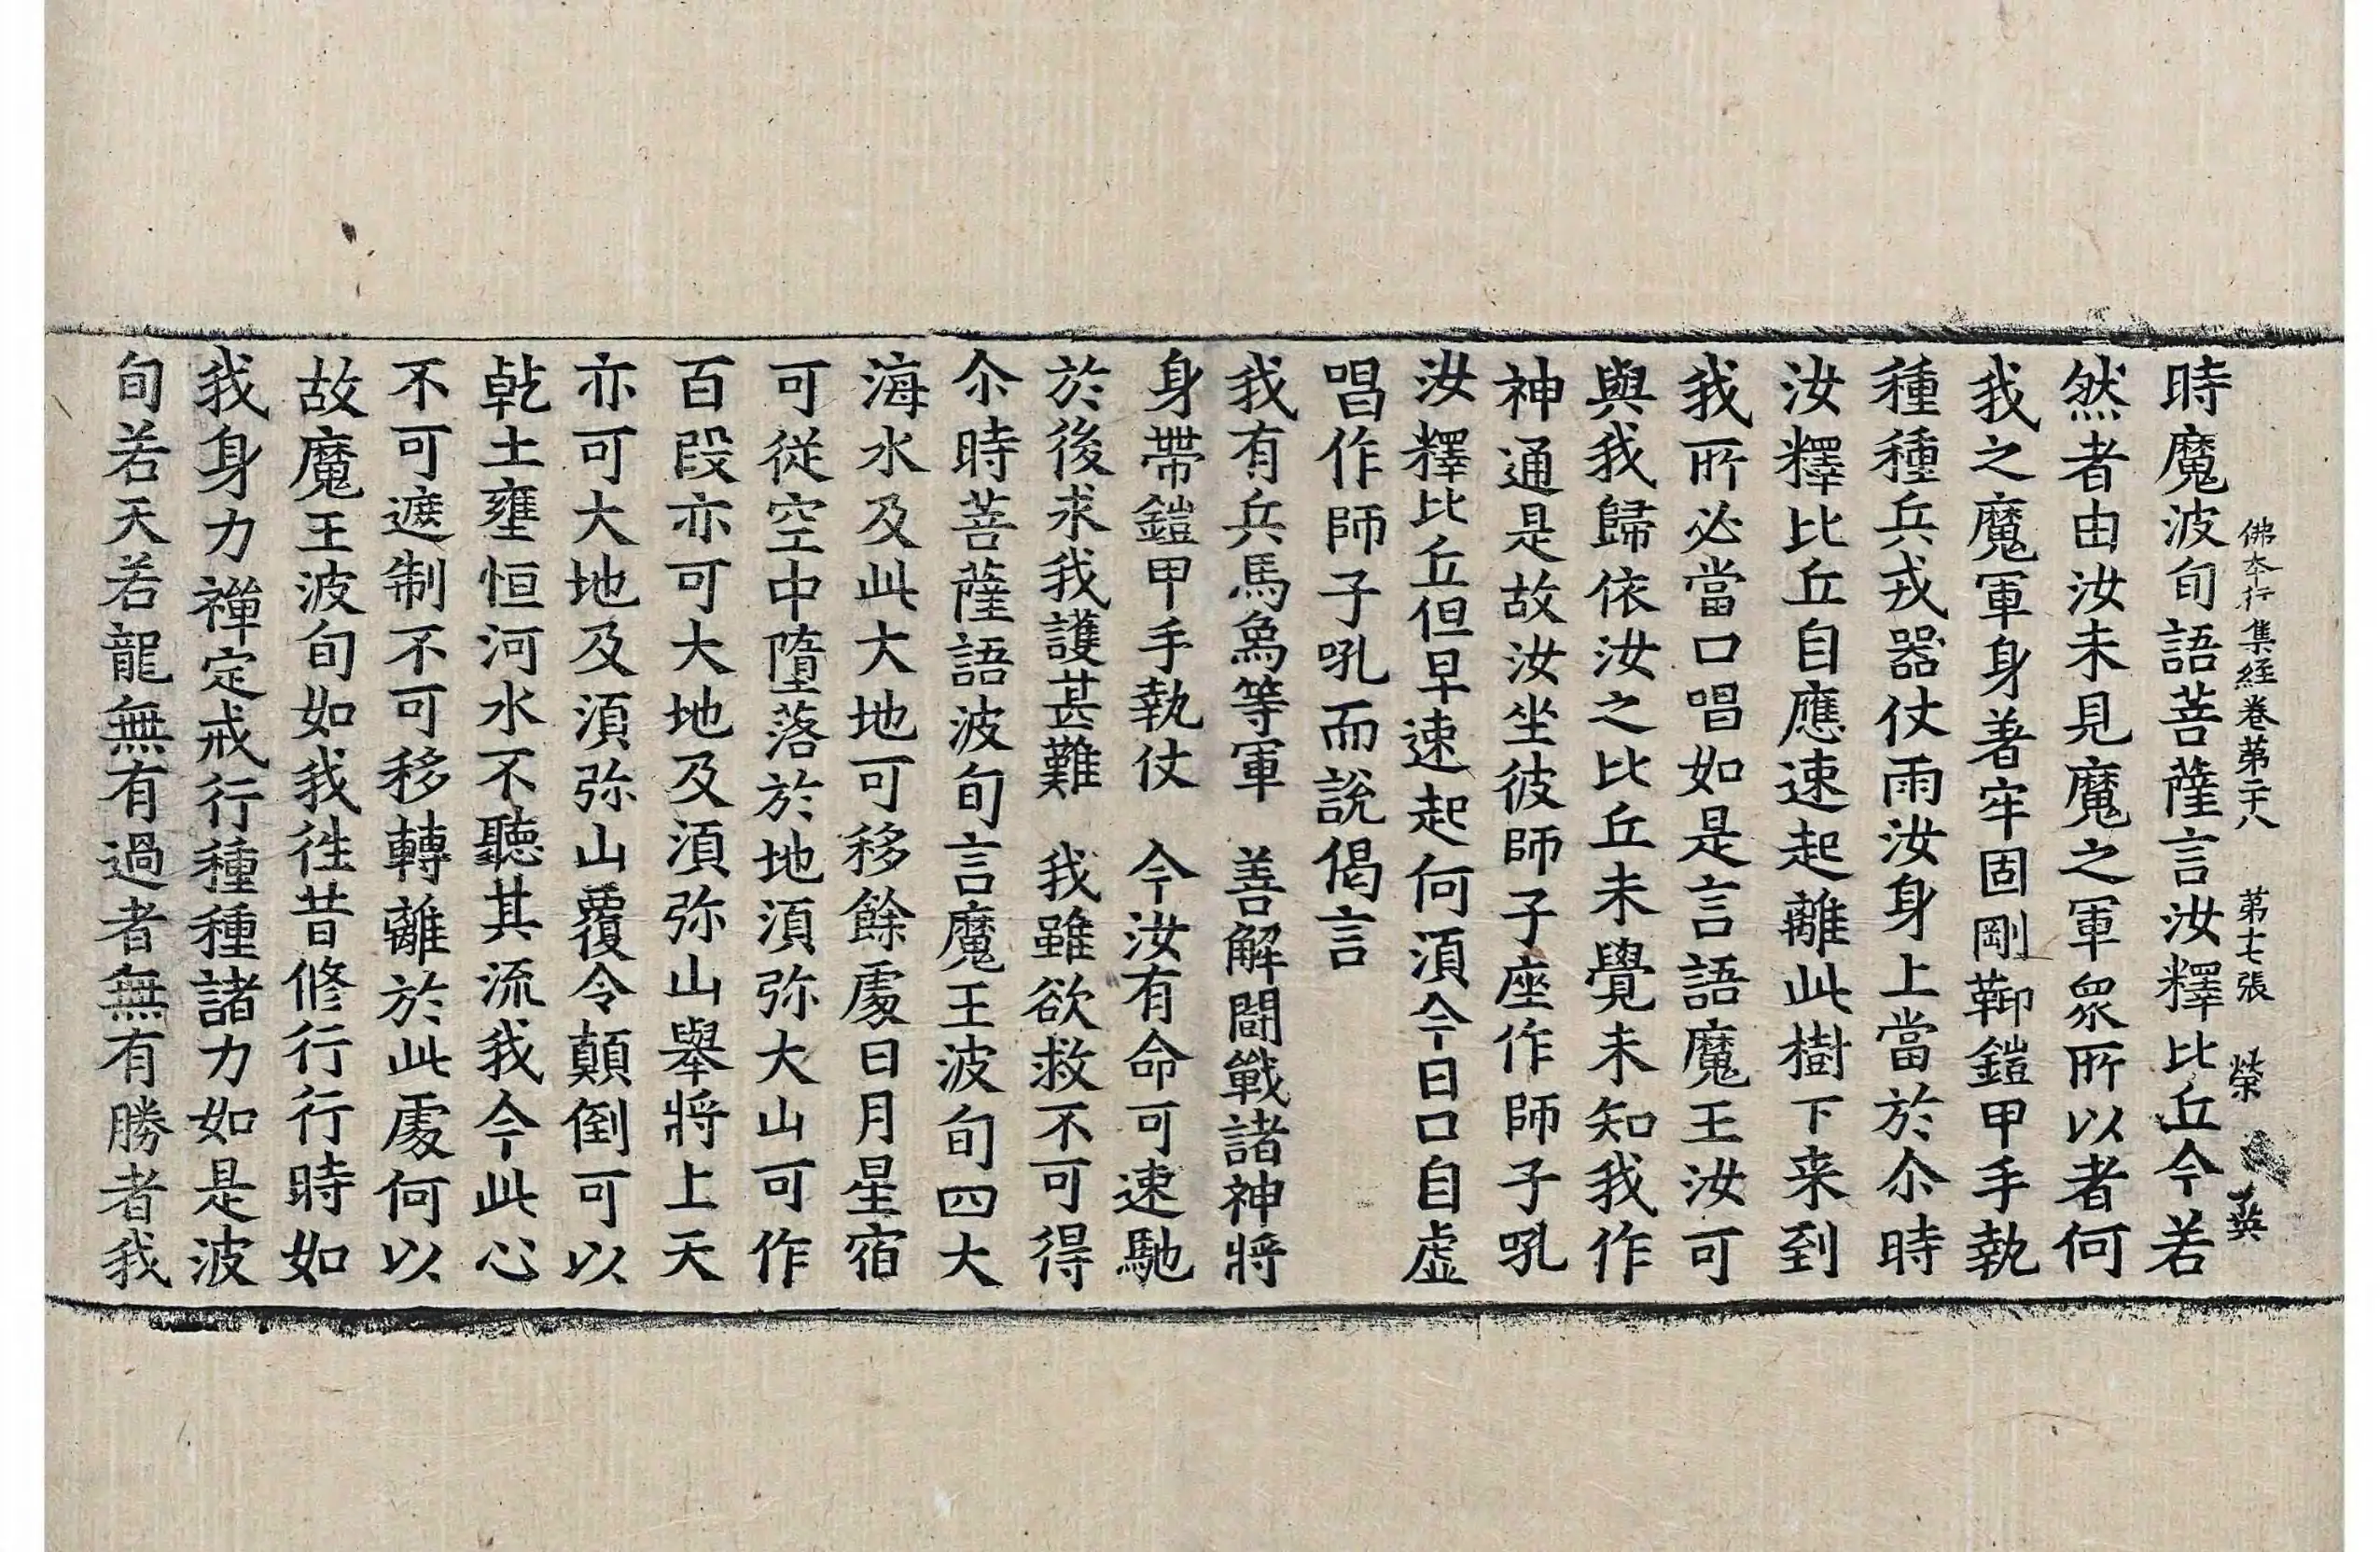 佛本行集經卷第二十八 第七張 榮
時魔波旬語菩薩言汝釋比丘今若
然者由汝未見魔之軍衆所以者何
我之魔軍身著牢固剛鞕鎧甲手執
種種兵戎器仗雨汝身上當於尒時
汝釋比丘自應速起離此樹下来到
我所必當口唱如是言語魔王汝可
與我歸依汝之比丘未覺未知我作
神通是故汝坐彼師子座作師子吼
汝釋比丘但早速起何湏今日口自虛
唱作師子吼而說偈言
我有兵馬象等軍 善解鬪戰諸神將
身帶鎧甲手執仗 今汝有命可速馳
於後求我護甚難 我雖欲救不可得
尒時菩薩語波旬言魔王波旬四大
海水及此大地可移餘處日月星宿
可從空中墮落於地湏弥大山可作
百段亦可大地及湏弥山舉將上天
亦可大地及湏弥山覆令顛倒可以
乾土壅恒河水不聽其流我今此心
不可遮制不可移轉離於此處何以
故魔王波旬如我徃昔修行行時如
我身力禪定戒行種種諸力如是波
旬若天若龍無有過者無有勝者我